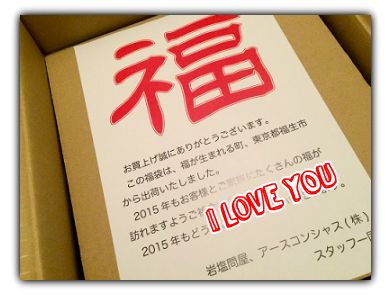 福
お買上げ誠にありがとうございます。
この福袋は、福が生まれる町、東京都福生市
から出荷いたしました。
2015年もお客様とご家族にたくさんの福が
訪れますよう
2015年もどう
I LOVE YOU
岩塩問屋、アースコンシャス(株)
スタッフ一同